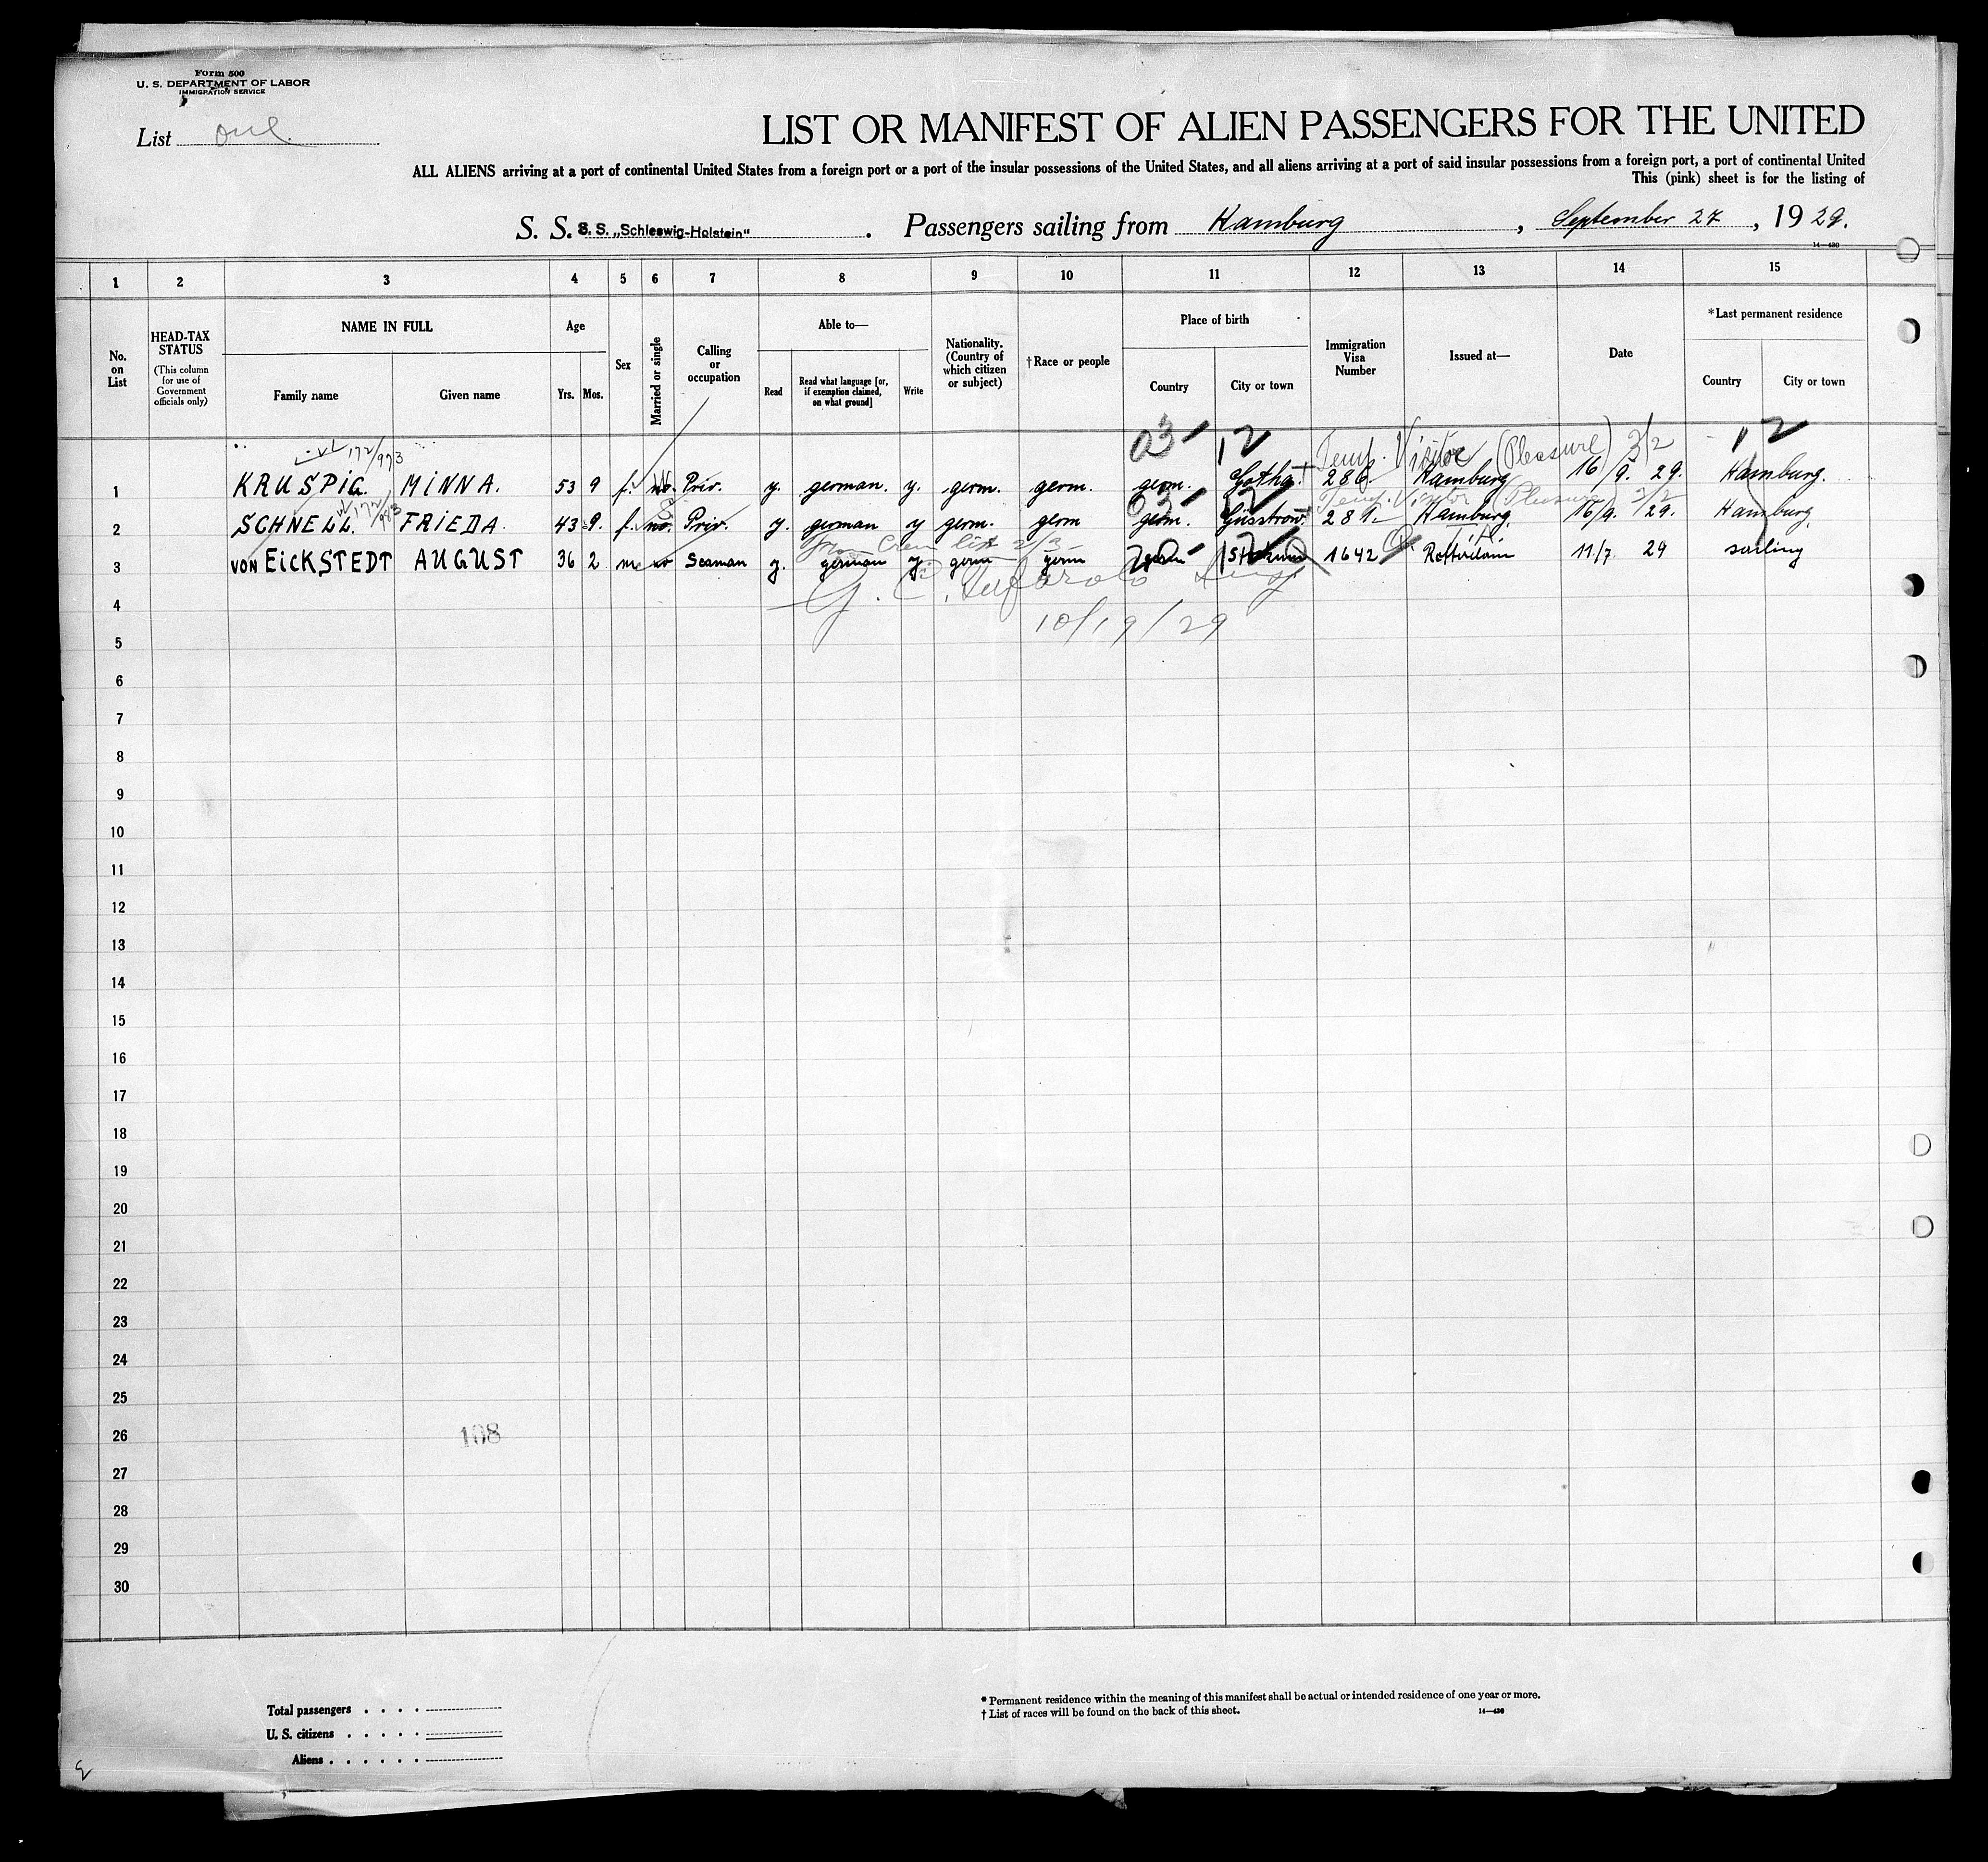 Form 500
U. S. DEPARTMENT OF LABOR
IMMIGRATION SERVICE
List one.
LIST OR MANIFEST OF ALIEN PASSENGERS FOR THE UNITED
ALL ALIENS arriving at a port of continental United States from a foreign port or a port of the insular possessions of the United States, and all aliens arriving at a port of said insular possessions from a foreign port, a port of continental United
This (pink) sheet is for the listing of
S. S. S. S. „Schleswig-Holstein“ . Passengers sailing from Hamburg , September 27 , 19 29.
14—430
1 2 3 4 5 6 7 8 9 10 11 12 13 14 15
No. on List
HEAD-TAX STATUS
(This column for use of Government officials only)
NAME IN FULL
Family name Given name
Age
Yrs. Mos.
Sex
Married or single
Calling or occupation
Able to—
Read
Read what language [or, if exemption claimed, on what ground]
Write
Nationality. (Country of which citizen or subject)
†Race or people
Place of birth
Country City or town
Immigration Visa Number
Issued at—
Date
*Last permanent residence
Country City or town
03 12 Temp. Visitor (Pleasure) 3/2 12
172/973
1 KRUSPIG. MINNA. 53 9 f. no. Priv. y. german. y. germ. germ. germ. Gotha 286. Hamburg 16/9. 29. Hamburg.
Temp. Visitor Pleasure 3/2
2 SCHNELL. FRIEDA. 43 9. f. no. Priv. y. german y germ. germ germ. Güstrow 281. Hamburg, 16/9. 29. Hamburg,
From Crew list 2/3
3 VON EICKSTEDT AUGUST 36 2 m no Seaman y. german y. germ germ germ 1642 Rotterdam 11/7 29 sailing
4
10/19/29
5
6
7
8
9
10
11
12
13
14
15
16
17
18
19
20
21
22
23
24
25
26
108
27
28
29
30
Total passengers . . . .
U. S. citizens . . . . .
Aliens . . . . . .
* Permanent residence within the meaning of this manifest shall be actual or intended residence of one year or more.
† List of races will be found on the back of this sheet.
14—430